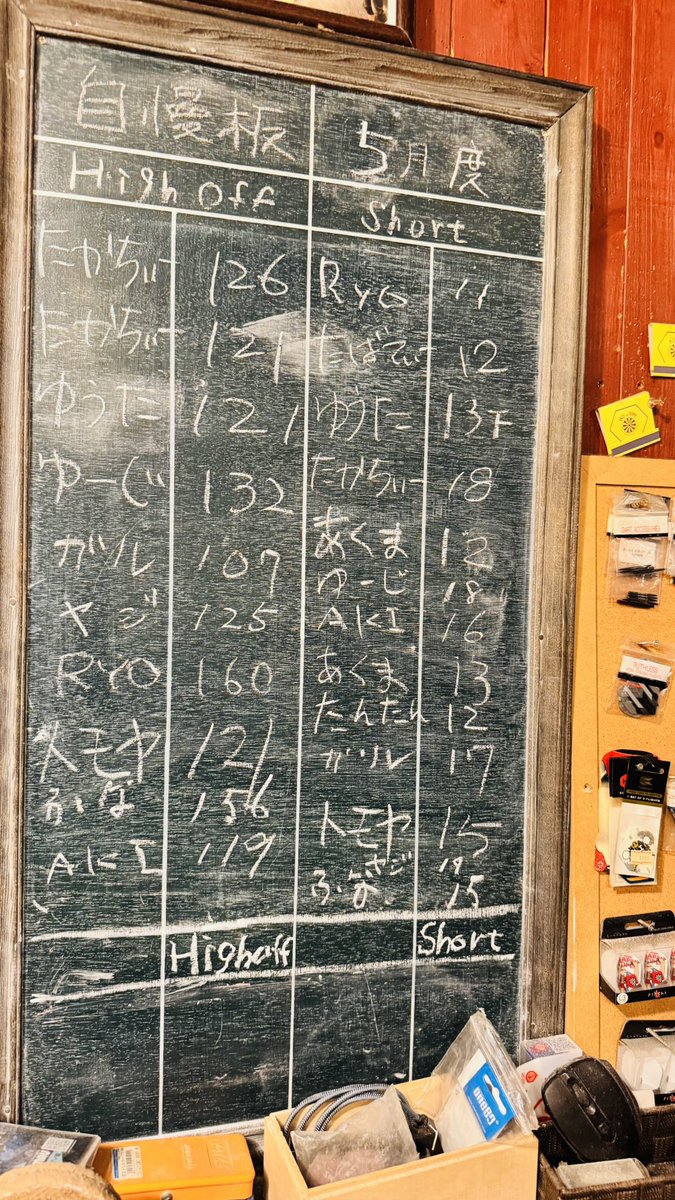 自慢板 5月度
High Off Short
たかちぃー 126 RYO 11
たかちぃー 121 たばてぃー 12
ゆうた 121 ゆうた 13T
ゆーじ 132 たかちぃー 18
ガリル 107 あくま 12
ゆーじ 18
ヤジ 125 AKI 16
RYO 160 あくま 13
たんたん 12
トモヤ 121 ガリル 17
ふな 156 トモヤ 15
AKI 119 19
ふな 15
High off Short
DART ACCESSORIES
RUTHLESS